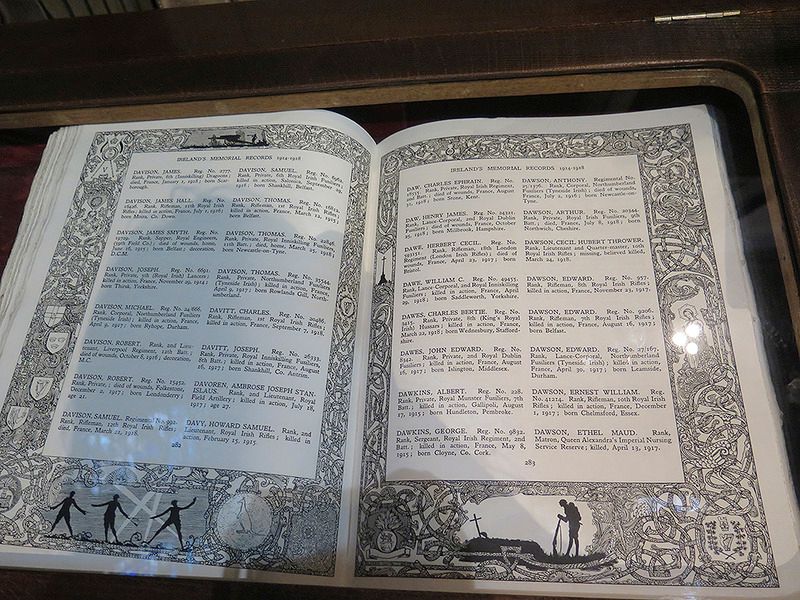 IRELAND'S MEMORIAL RECORDS 1914-1918
DAVISON, JAMES. Reg. No. 2777.
Rank, Private, 6th (Inniskilling) Dragoons;
died, France, January 1, 1918; born Scar-
borough.
DAVISON, JAMES HALL. Reg. No.
Rank, Rifleman, 11th Royal Irish
Rifles; killed in action, France, July 1, 1916;
born Moira, Co. Down.
DAVISON, JAMES SMYTH. Reg. No.
Rank, Sapper, Royal Engineers,
died of wounds, home,
June 16, 1915; born Belfast; decoration,
D.C.M.
DAVISON, JOSEPH. Reg. No. 6691.
Rank, Private, 5th (Royal Irish) Lancers;
killed in action, France, November 29, 1914;
born Thirsk, Yorkshire.
DAVISON, MICHAEL. Reg. No. 24/666.
Rank, Corporal, Northumberland Fusiliers
(Tyneside Irish); killed in action, France,
April 9, 1917; born Ryhope, Durham.
DAVISON, ROBERT. Rank, and Lieu-
tenant, Liverpool Regiment, 12th Batt.;
died of wounds, October 8, 1916; decoration,
M.C.
DAVISON, ROBERT. Reg. No. 15452.
Rank, Private; died of wounds, Folkestone,
December 2, 1917; born Londonderry; age
21.
DAVISON, SAMUEL. Regimental No. 992.
Rank, Rifleman, 12th Royal Irish Rifles;
died, France, March 21, 1918.
DAVISON, SAMUEL. Reg. No.
Rank, Private, 6th Royal Irish Fusiliers;
killed in action, Salonica, September
1916; born Shankhill, Belfast.
DAVISON, THOMAS. Reg. No.
Rank, Rifleman, 1st Royal Irish Rifles;
killed in action, France, March 12, 1915;
born Belfast.
DAVISON, THOMAS. Reg. No.
Rank, Private, Royal Inniskilling Fusiliers,
11th Batt.; died, home, March 25, 1918;
born Newcastle-on-Tyne.
DAVISON, THOMAS. Reg. No.
Rank, Private, Northumberland Fusiliers
(Tyneside Irish); killed in action, France,
April 9, 1917; born Rowlands Gill, North-
umberland.
DAVITT, CHARLES. Reg. No. 20486.
Rank, Rifleman, 1st Royal Irish Rifles;
killed in action, France, September 7, 1918.
DAVITT, JOSEPH. Reg. No. 26333.
Rank, Private, Royal Inniskilling Fusiliers,
8th Batt.; killed in action, France, August
16, 1917; born Shankhill, Co. Antrim.
DAVOREN, AMBROSE JOSEPH STAN-
ISLAUS. Rank, and Lieutenant, Royal
Field Artillery; killed in action, July 18,
1917; age 27.
DAVY, HOWARD SAMUEL. Rank, and
Lieutenant, Royal Irish Rifles; killed in
action, February 15, 1915.
282
IRELAND'S MEMORIAL RECORDS 1914-1918
DAW, CHARLES EPHRAIN. Reg. No.
Rank, Private, Royal Irish Regiment,
2nd Batt.; died of wounds, France, August
1918; born Stone, Kent.
DAW, HENRY JAMES. Reg. No. 24321.
Rank, Lance-Corporal, 2nd Royal Dublin
Fusiliers; killed in action, France, March
1918; born Millbrook, Hampshire.
DAWE, HERBERT CECIL. Reg. No.
Rank, Rifleman, 18th London
Regiment (London Irish Rifles); died of
wounds, France, April 23, 1917; born
Bristol.
DAWE, WILLIAM C. Reg. No. 49455.
Rank, Lance-Corporal, 2nd Royal Inniskilling
Fusiliers; killed in action, France, April
29, 1918; born Saddleworth, Yorkshire.
DAWES, CHARLES BERTIE. Reg. No.
Rank, Private, 8th (King's Royal
Irish) Hussars; killed in action, France,
March 22, 1918; born Wednesbury, Stafford.
DAWES, JOHN EDWARD. Reg. No.
Rank, Private, 2nd Royal Dublin
Fusiliers; killed in action, France, August
16, 1917; born Islington, Middlesex.
DAWKINS, ALBERT. Reg. No. 228.
Rank, Private, Royal Munster Fusiliers, 7th
Batt.; killed in action, Gallipoli, August
17, 1915; born Hundleton, Pembroke.
DAWKINS, GEORGE. Reg. No. 9832.
Rank, Sergeant, Royal Irish Regiment, 2nd
Batt.; killed in action, France, May 8,
1915; born Cloyne, Co. Cork.
DAWSON, ANTHONY. Regimental No.
25/1376. Rank, Corporal, Northumberland
Fusiliers (Tyneside Irish); killed in action,
France, July 2, 1916; born Newcastle-on-
Tyne.
DAWSON, ARTHUR. Reg. No. 20344.
Rank, Private, Royal Irish Fusiliers, 9th
Batt.; died, France, July 8, 1918; born
Northwich, Cheshire.
DAWSON, CECIL HUBERT THROWER.
Rank, Lieutenant and Quarter-master, 10th
Royal Irish Rifles; missing, believed killed,
March 24, 1918.
DAWSON, EDWARD. Reg. No. 957.
Rank, Rifleman, 8th Royal Irish Rifles;
killed in action, France, November 23, 1917.
DAWSON, EDWARD. Reg. No. 9206.
Rank, Rifleman, 7th Royal Irish Rifles;
killed in action, France, August 16, 1917;
born Belfast.
DAWSON, EDWARD. Reg. No. 27/167.
Rank, Lance-Corporal, Northumberland
Fusiliers (Tyneside Irish); killed in action,
France, April 30, 1917; born Leamside,
Durham.
DAWSON, ERNEST WILLIAM. Reg.
No. 41214. Rank, Rifleman, 10th Royal Irish
Rifles; killed in action, France, December
1, 1917; born Chelmsford, Essex.
DAWSON, ETHEL MAUD. Rank,
Matron, Queen Alexandra's Imperial Nursing
Service Reserve; killed, April 13, 1917.
283